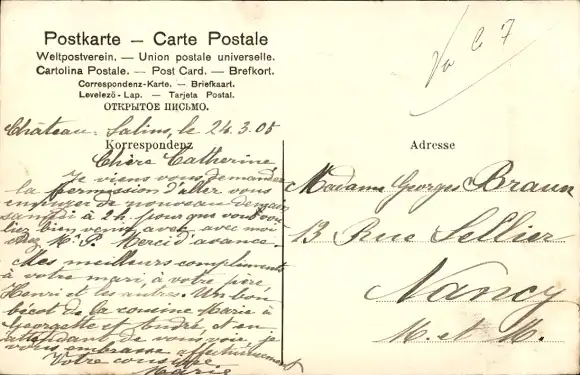 Postkarte — Carte Postale
Weltpostverein. — Union postale universelle.
Cartolina Postale. — Post Card. — Brefkort.
Correspondenz-Karte. — Briefkaart.
Levelező-Lap. — Tarjeta Postal.
ОТКРЫТОЕ ПИСЬМО.
Château-Salins, le 24.3.05
Korrespondenz
Chère Catherine
Je viens vous demander
la permission d'aller vous
de nouveau demain
samedi à 2h. pour que vous
bien venir avec moi
chez M. P. Merci d'avance.
Mes meilleurs compliments
à votre mari, à votre père,
Henri et les autres. Un bon
bécot de la cousine Marie à
Georgette et André, et en
attendant de vous voir, je
vous embrasse affectueusement
Votre cousine
Marie
Adresse
Madame Georges Braun
13 Rue Sellier
Nancy
M. et M.